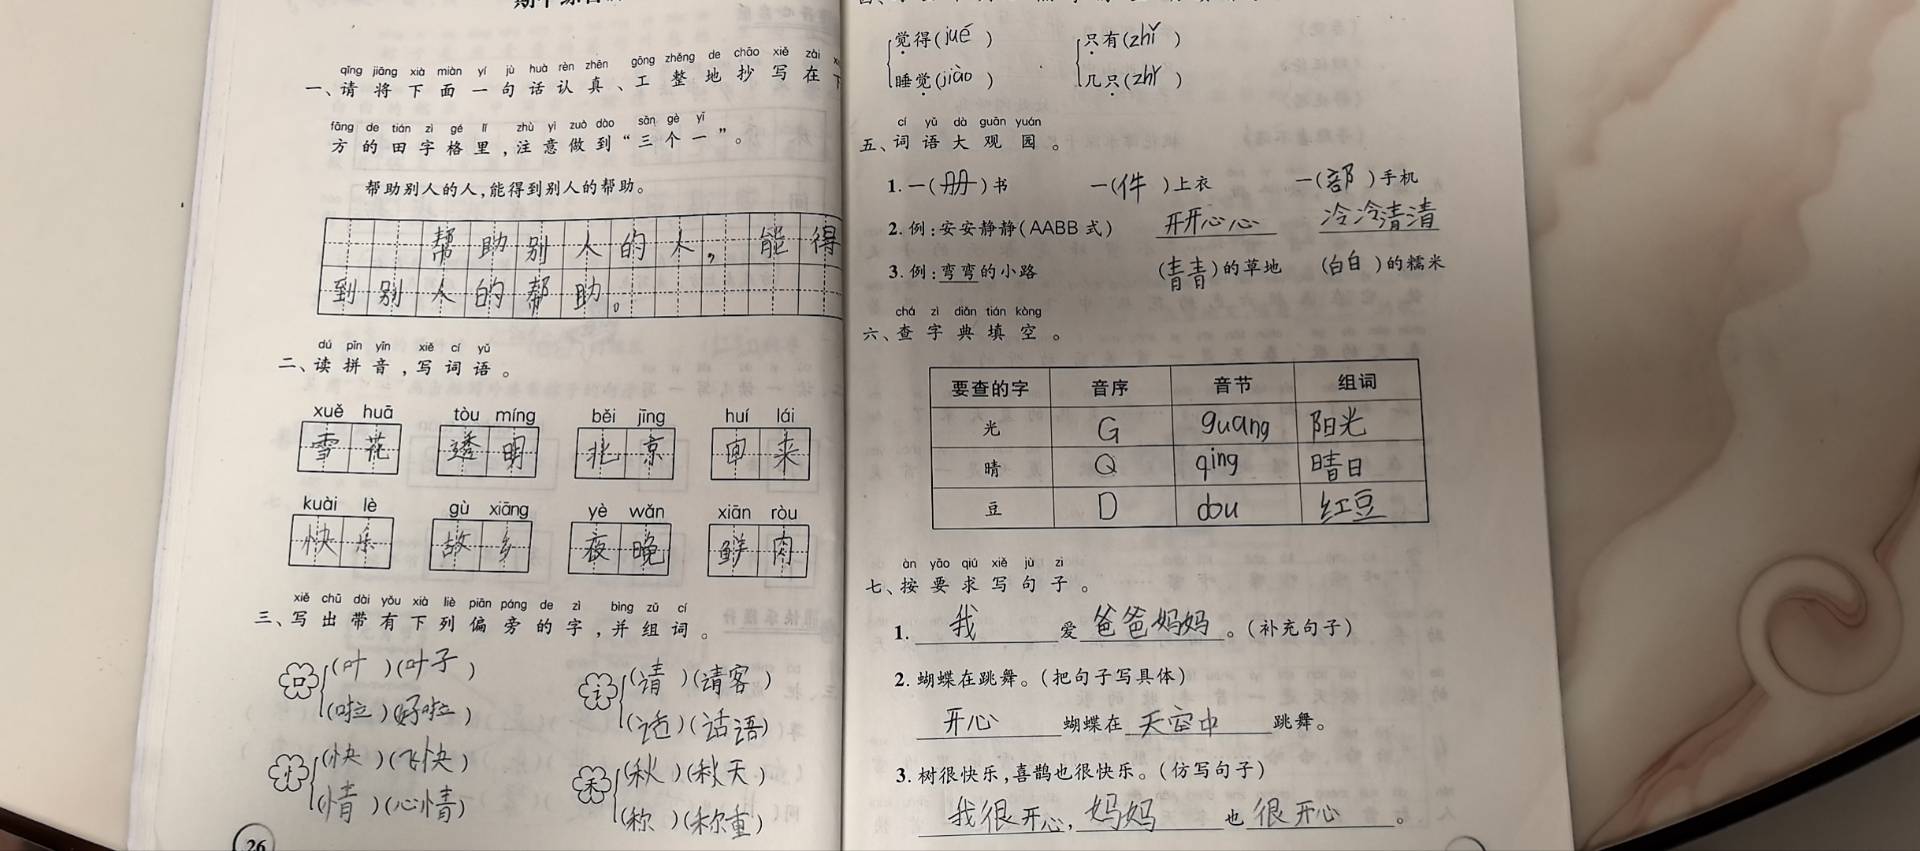 qǐng jiāng xià miàn yí jù huà rèn zhēn gōng zhěng de chāo xiě zài
一、请将下面一句话认真、工整地抄写在下
fāng de tián zì gé lǐ zhù yì zuò dào sān gè yī
方的田字格里,注意做到“三个一”。
帮助别人的人,能得到别人的帮助。
帮助别人的人,能得
到别人的帮助。
dú pīn yīn xiě cí yǔ
二、读拼音,写词语。
xuě huā tòu míng běi jīng huí lái
雪花 透明 北京 回来
kuài lè gù xiāng yè wǎn xiān ròu
快乐 故乡 夜晚 鲜肉
xiě chū dài yǒu xià liè piān páng de zì bìng zǔ cí
三、写出带有下列偏旁的字,并组词。
口 (叶)(叶子) 讠 (请)(请客)
(啦)(好啦) (话)(话语)
忄 (快)(飞快) 禾 (秋)(秋天)
(情)(心情) (称)(称重)
26
觉得(jué) 只有(zhǐ)
睡觉(jiào) 几只(zhǐ)
cí yǔ dà guān yuán
五、词语大观园。
1. 一(册)书 一(件)上衣 一(部)手机
2. 例:安安静静(AABB 式) 开开心心 冷冷清清
3. 例:弯弯的小路 (青青)的草地 (白白)的糯米
chá zì diǎn tián kòng
六、查字典填空。
要查的字 音序 音节 组词
光 G guang 阳光
晴 Q qing 晴日
豆 D dou 红豆
àn yāo qiú xiě jù zi
七、按要求写句子。
1. 我爱爸爸妈妈。(补充句子)
2. 蝴蝶在跳舞。(把句子写具体)
开心蝴蝶在天空中跳舞。
3. 树很快乐,喜鹊也很快乐。(仿写句子)
我很开心,妈妈也很开心。